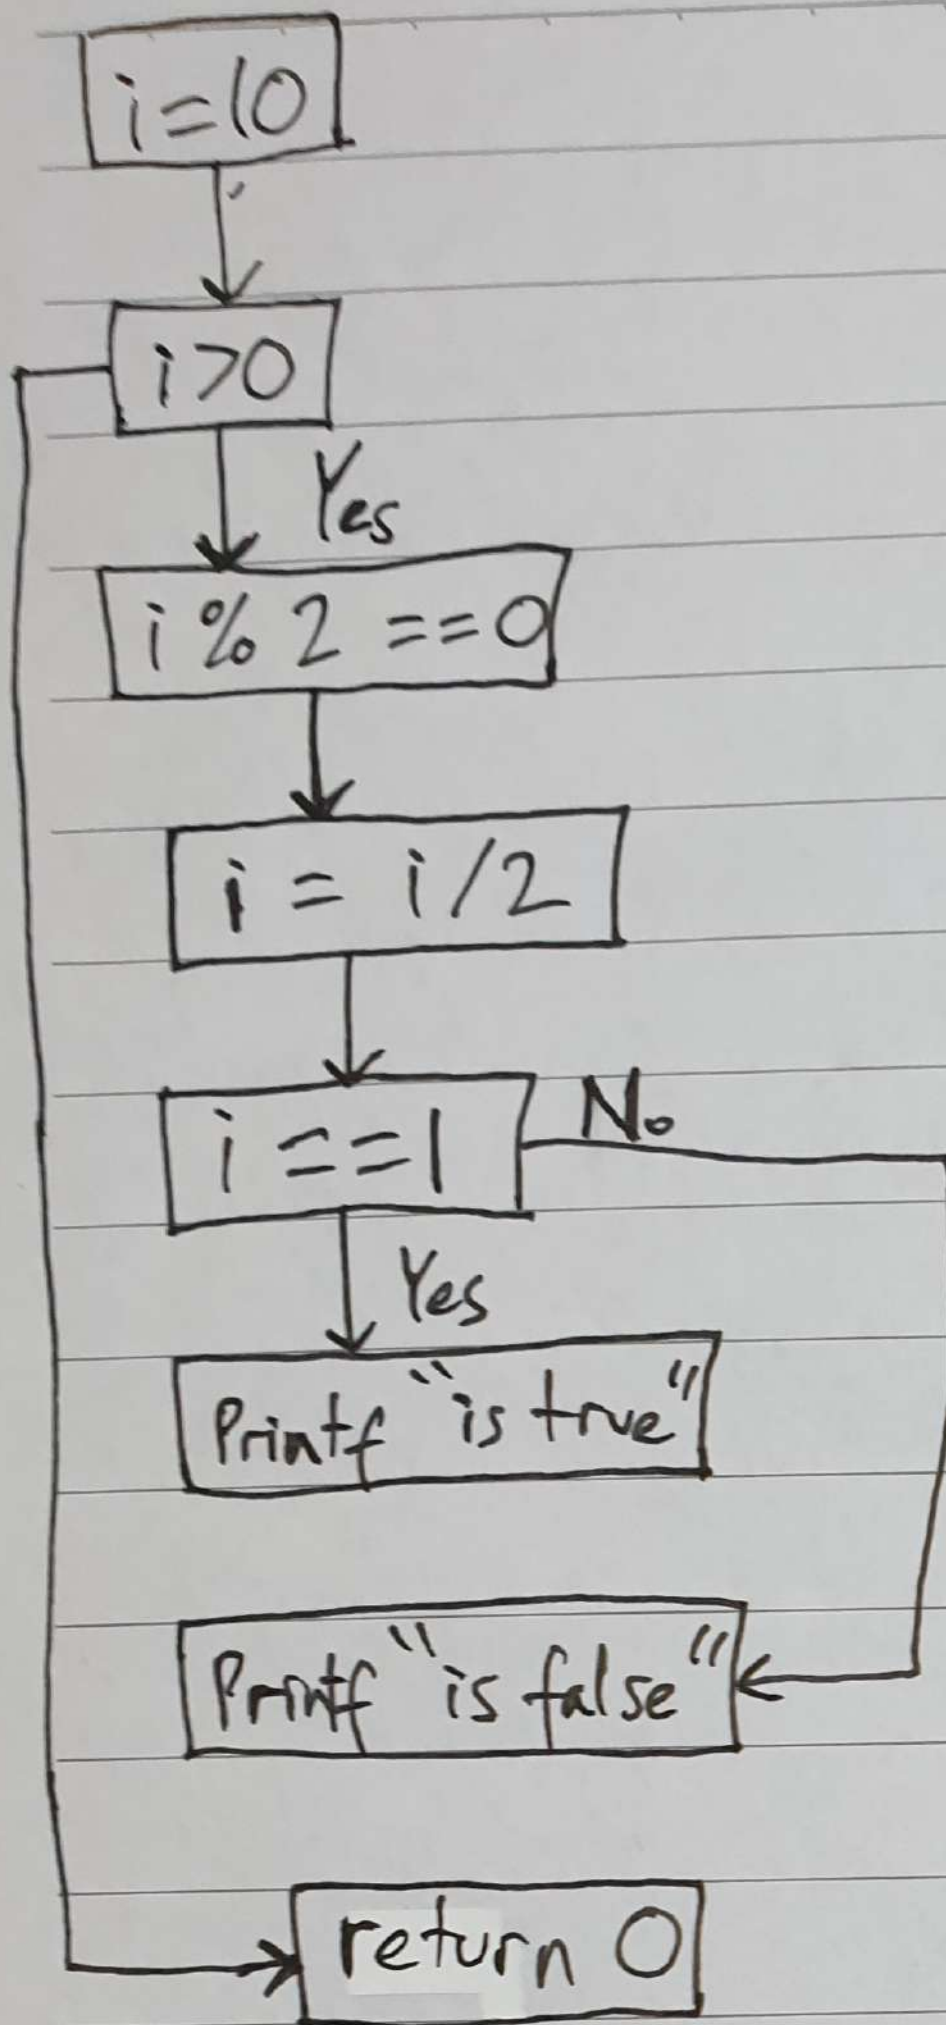 i=10
i>0
Yes
i % 2 ==0
i = i/2
i ==1
No
Yes
Printf "is true"
Printf "is false"
return 0